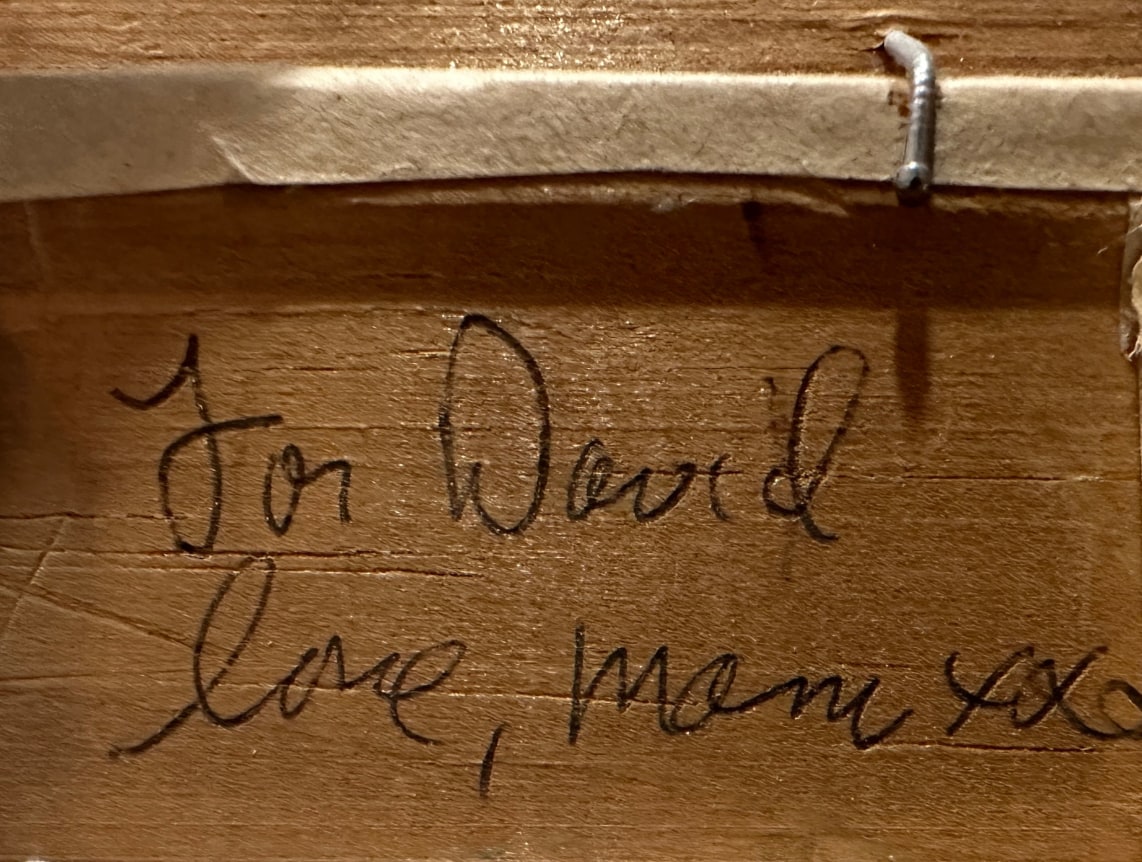 For David
love, mom xxo